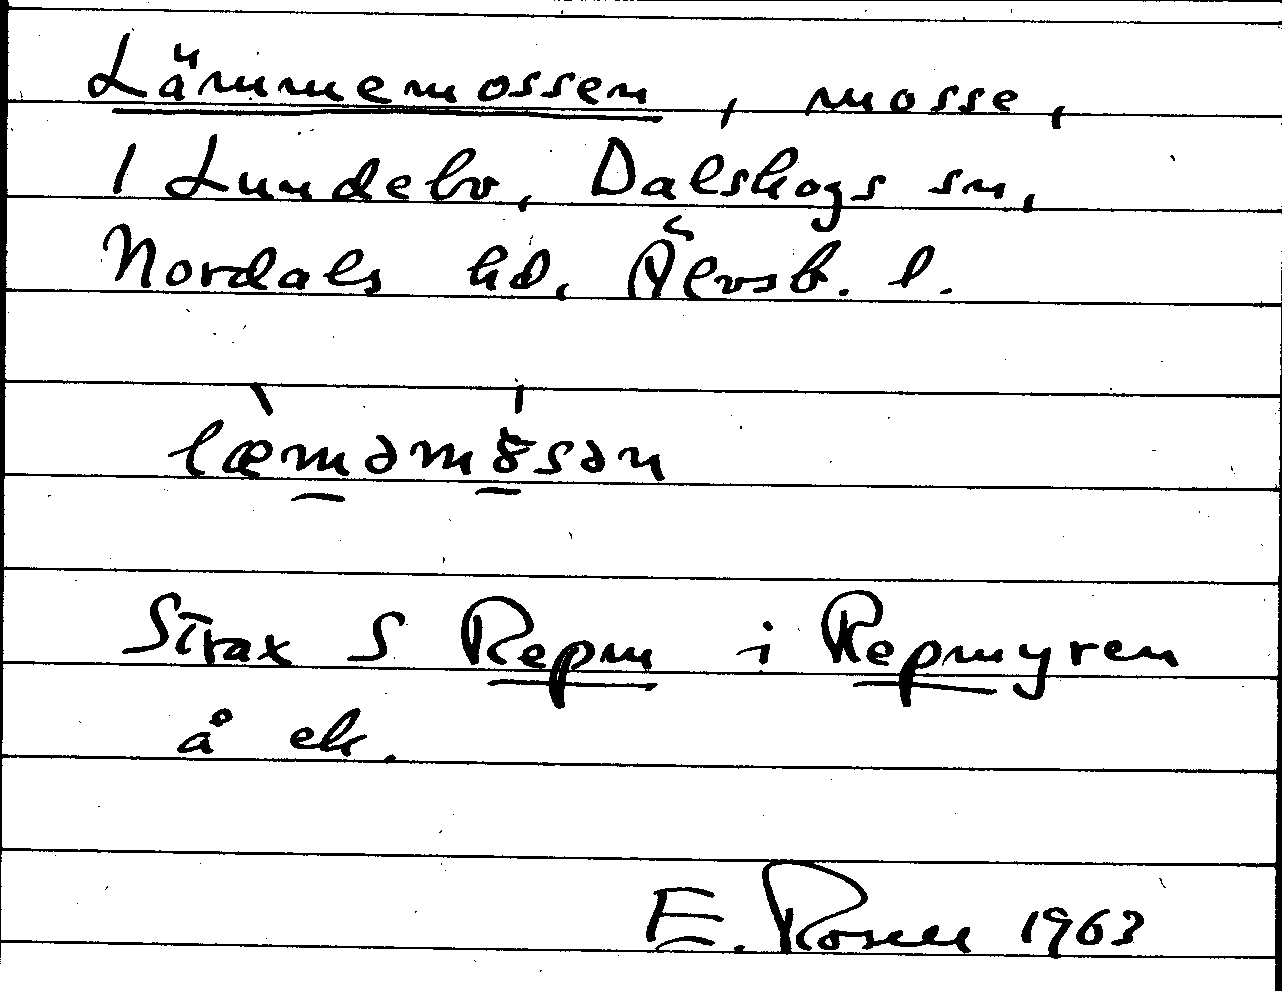 Lämmemossen, mosse,
1 Lundebo, Dalskogs sn,
Nordals hd, Älvsb. l.
læ̀məmɔ̈́sən
Strax S Repm i Repmyren
å ek.
E. Rosell 1963